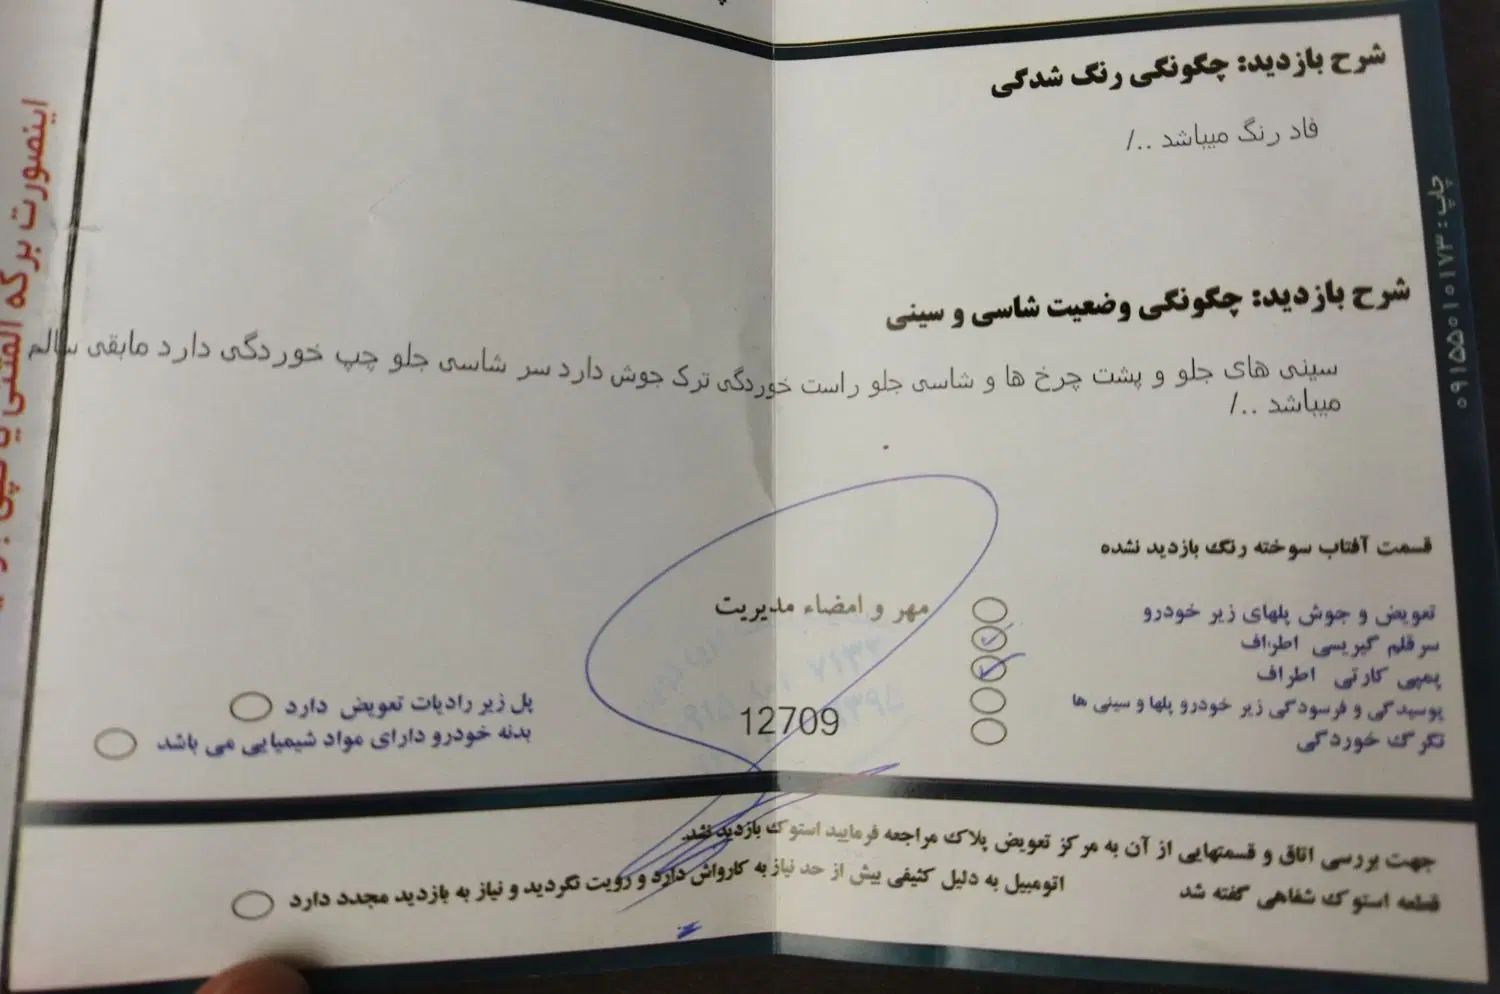 شرح بازدید: چگونگی رنگ شدگی
فاد رنگ میباشد ../
شرح بازدید: چگونگی وضعیت شاسی و سینی
سینی های جلو و پشت چرخ ها و شاسی جلو راست خوردگی ترک جوش دارد سر شاسی جلو چپ خوردگی دارد مابقی سالم
میباشد ../
قسمت آفتاب سوخته رنگ بازدید نشده
مهر و امضاء مدیریت
12709
تعویض و جوش پلهای زیر خودرو
سرقلم گیریسی اطراف
پمپی کارتی اطراف
پوسیدگی و فرسودگی زیر خودرو پلها و سینی ها
تگرگ خوردگی
پل زیر رادیات تعویض دارد
بدنه خودرو دارای مواد شیمیایی می باشد
جهت بررسی اتاق و قسمتهایی از آن به مرکز تعویض پلاک مراجعه فرمایید استوک بازدید نشد.
قطعه استوک شفاهی گفته شد
اتومبیل به دلیل کثیفی بیش از حد نیاز به کارواش دارد و رویت نگردید و نیاز به بازدید مجدد دارد
چاپ: ۰۹۱۵۵۰۱۰۱۷۳
اینصورت برگه المثنی